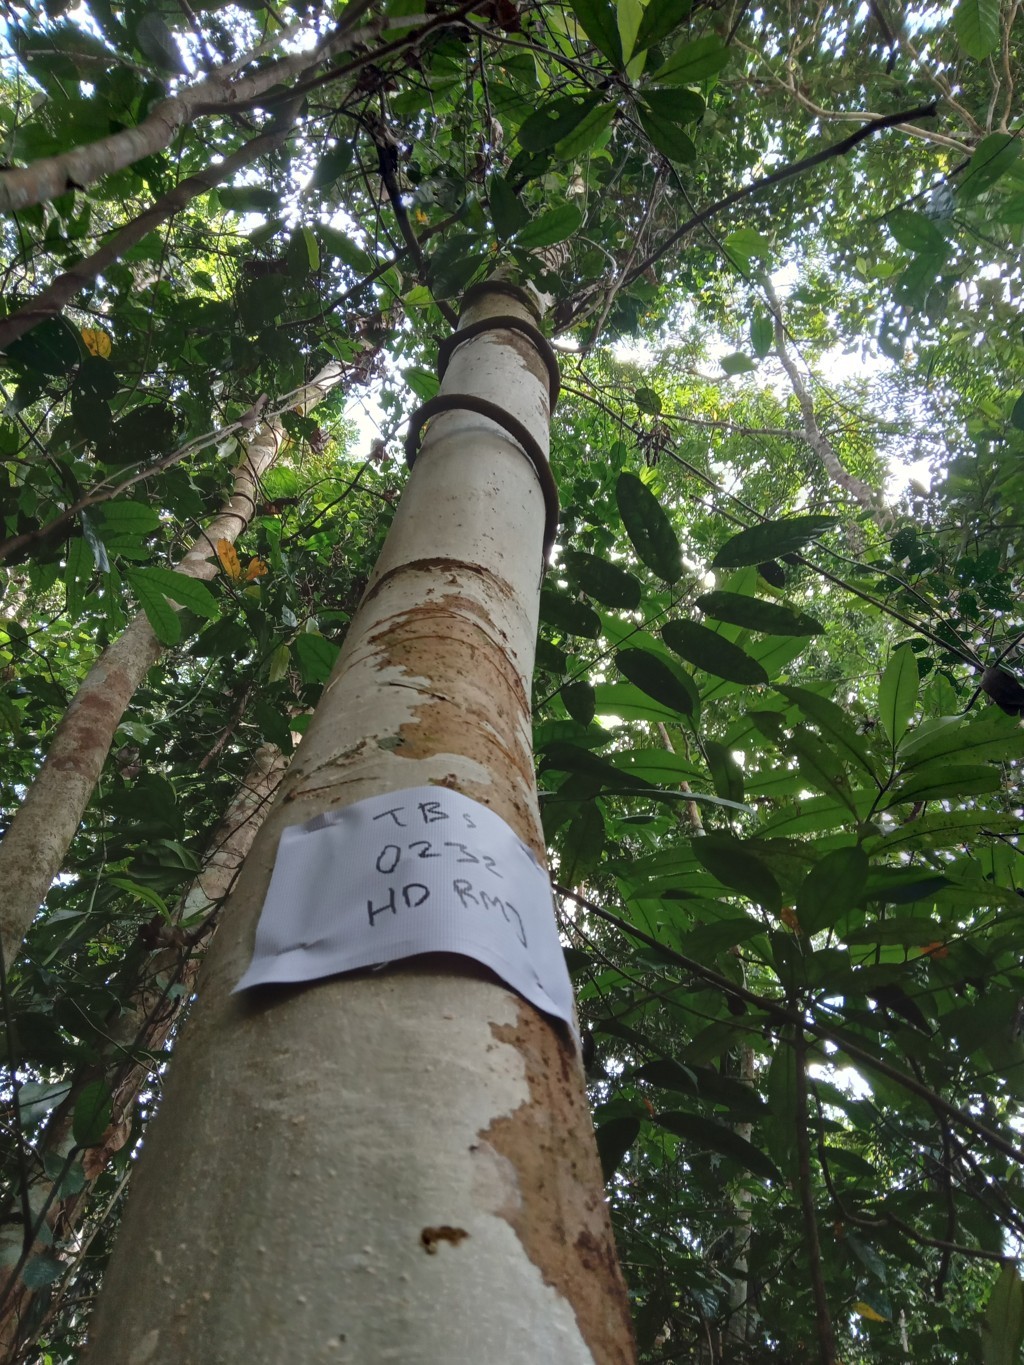 TBs
0232
HD RMJ